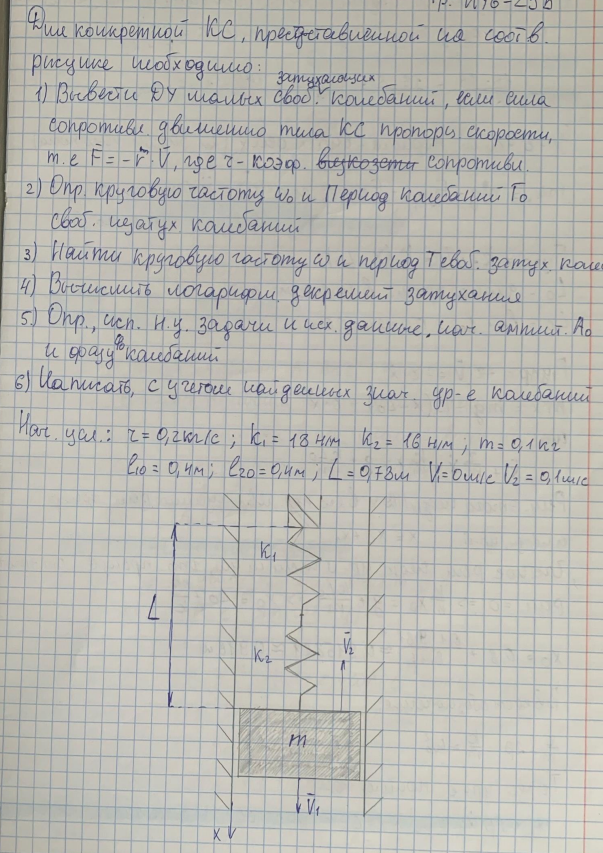 гр. И
Для конкретной КС, представленной на соотв.
рисунке необходимо:
затухающих
1) Вывести ДУ малых своб. колебаний, если сила
сопротивл. движению тела КС пропорц. скорости,
т.е F̄ = -r·V̄, где r - коэф. вязкости сопротивл.
2) Опр. круговую частоту ω₀ и Период колебаний T₀
своб. незатух колебаний
3) Найти круговую частоту ω и период T своб. затух. колеб
4) Вычислить логарифм. декремент затухания
5) Опр., исп. н.у. задачи и исх. данные, нач. амплит. A₀
и фазу φ₀ колебаний
6) Написать, с учетом найденных знач. ур-е колебаний
Нач. усл.: r = 0,2кг/с ; k₁ = 18 н/м k₂ = 16 н/м ; m = 0,1 кг
l₁₀ = 0,4м; l₂₀ = 0,4м ; L = 0,78м V₁ = 0м/с V₂ = 0,1м/с
k₁
L
k₂
V̄₂
m
V̄₁
x